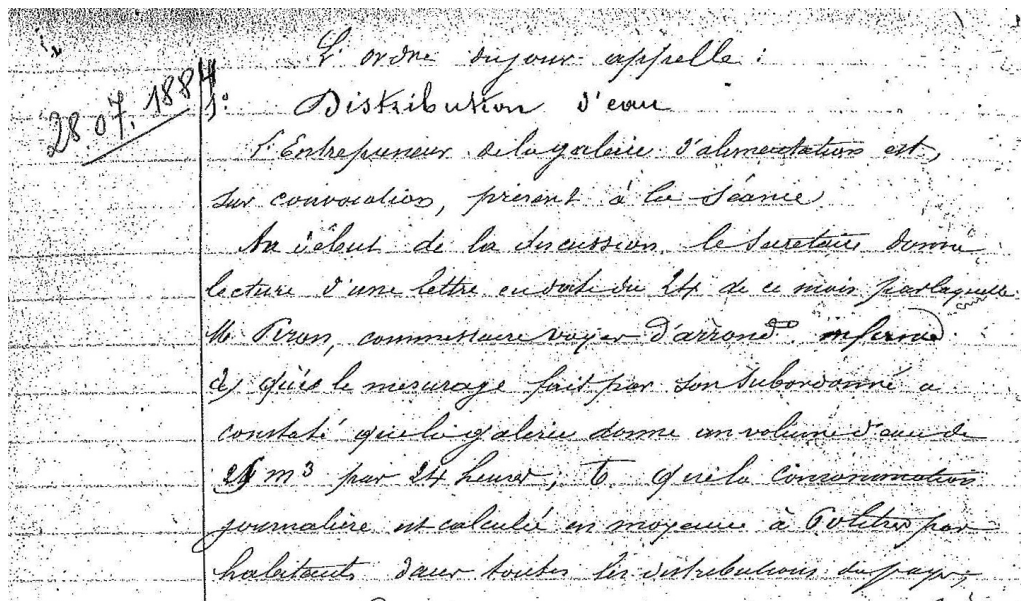 L'ordre du jour appelle :
28.07.1884
1° Distribution d'eau
L'Entrepreneur de la galerie d'alimentation est,
sur convocation, présent à la séance
Au début de la discussion, le secrétaire donne
lecture d'une lettre en date du 24 de ce mois par laquelle
M Piron, commissaire voyer d'arrond^t informe
a) que le mesurage fait par son subordonné a
constaté que la galerie donne un volume d'eau de
m³ par 24 heures; b. que la consommation
journalière est calculée en moyenne à litres par
habitants dans toutes les distributions du pays;